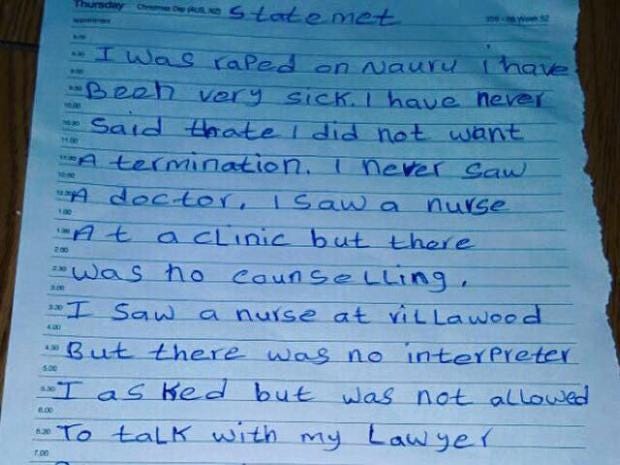 Thursday Christmas Day (AUS, NZ) Statemet
Appointment Week 52
8.30 I was raped on Nauru I have
9.00
9.30 Been very sick. I have never
10.00
10.30 Said thate I did not want
11.00
11.30 A termination. I never saw
12.00
12.30 A doctor. I saw a nurse
1.00
1.30 At a clinic but there
2.00
2.30 was no counselling.
3.00
3.30 I saw a nurse at villawood
4.00
4.30 But there was no interpreter
5.00
5.30 I asked but was not allowed
6.00
6.30 To talk with my Lawyer
7.00